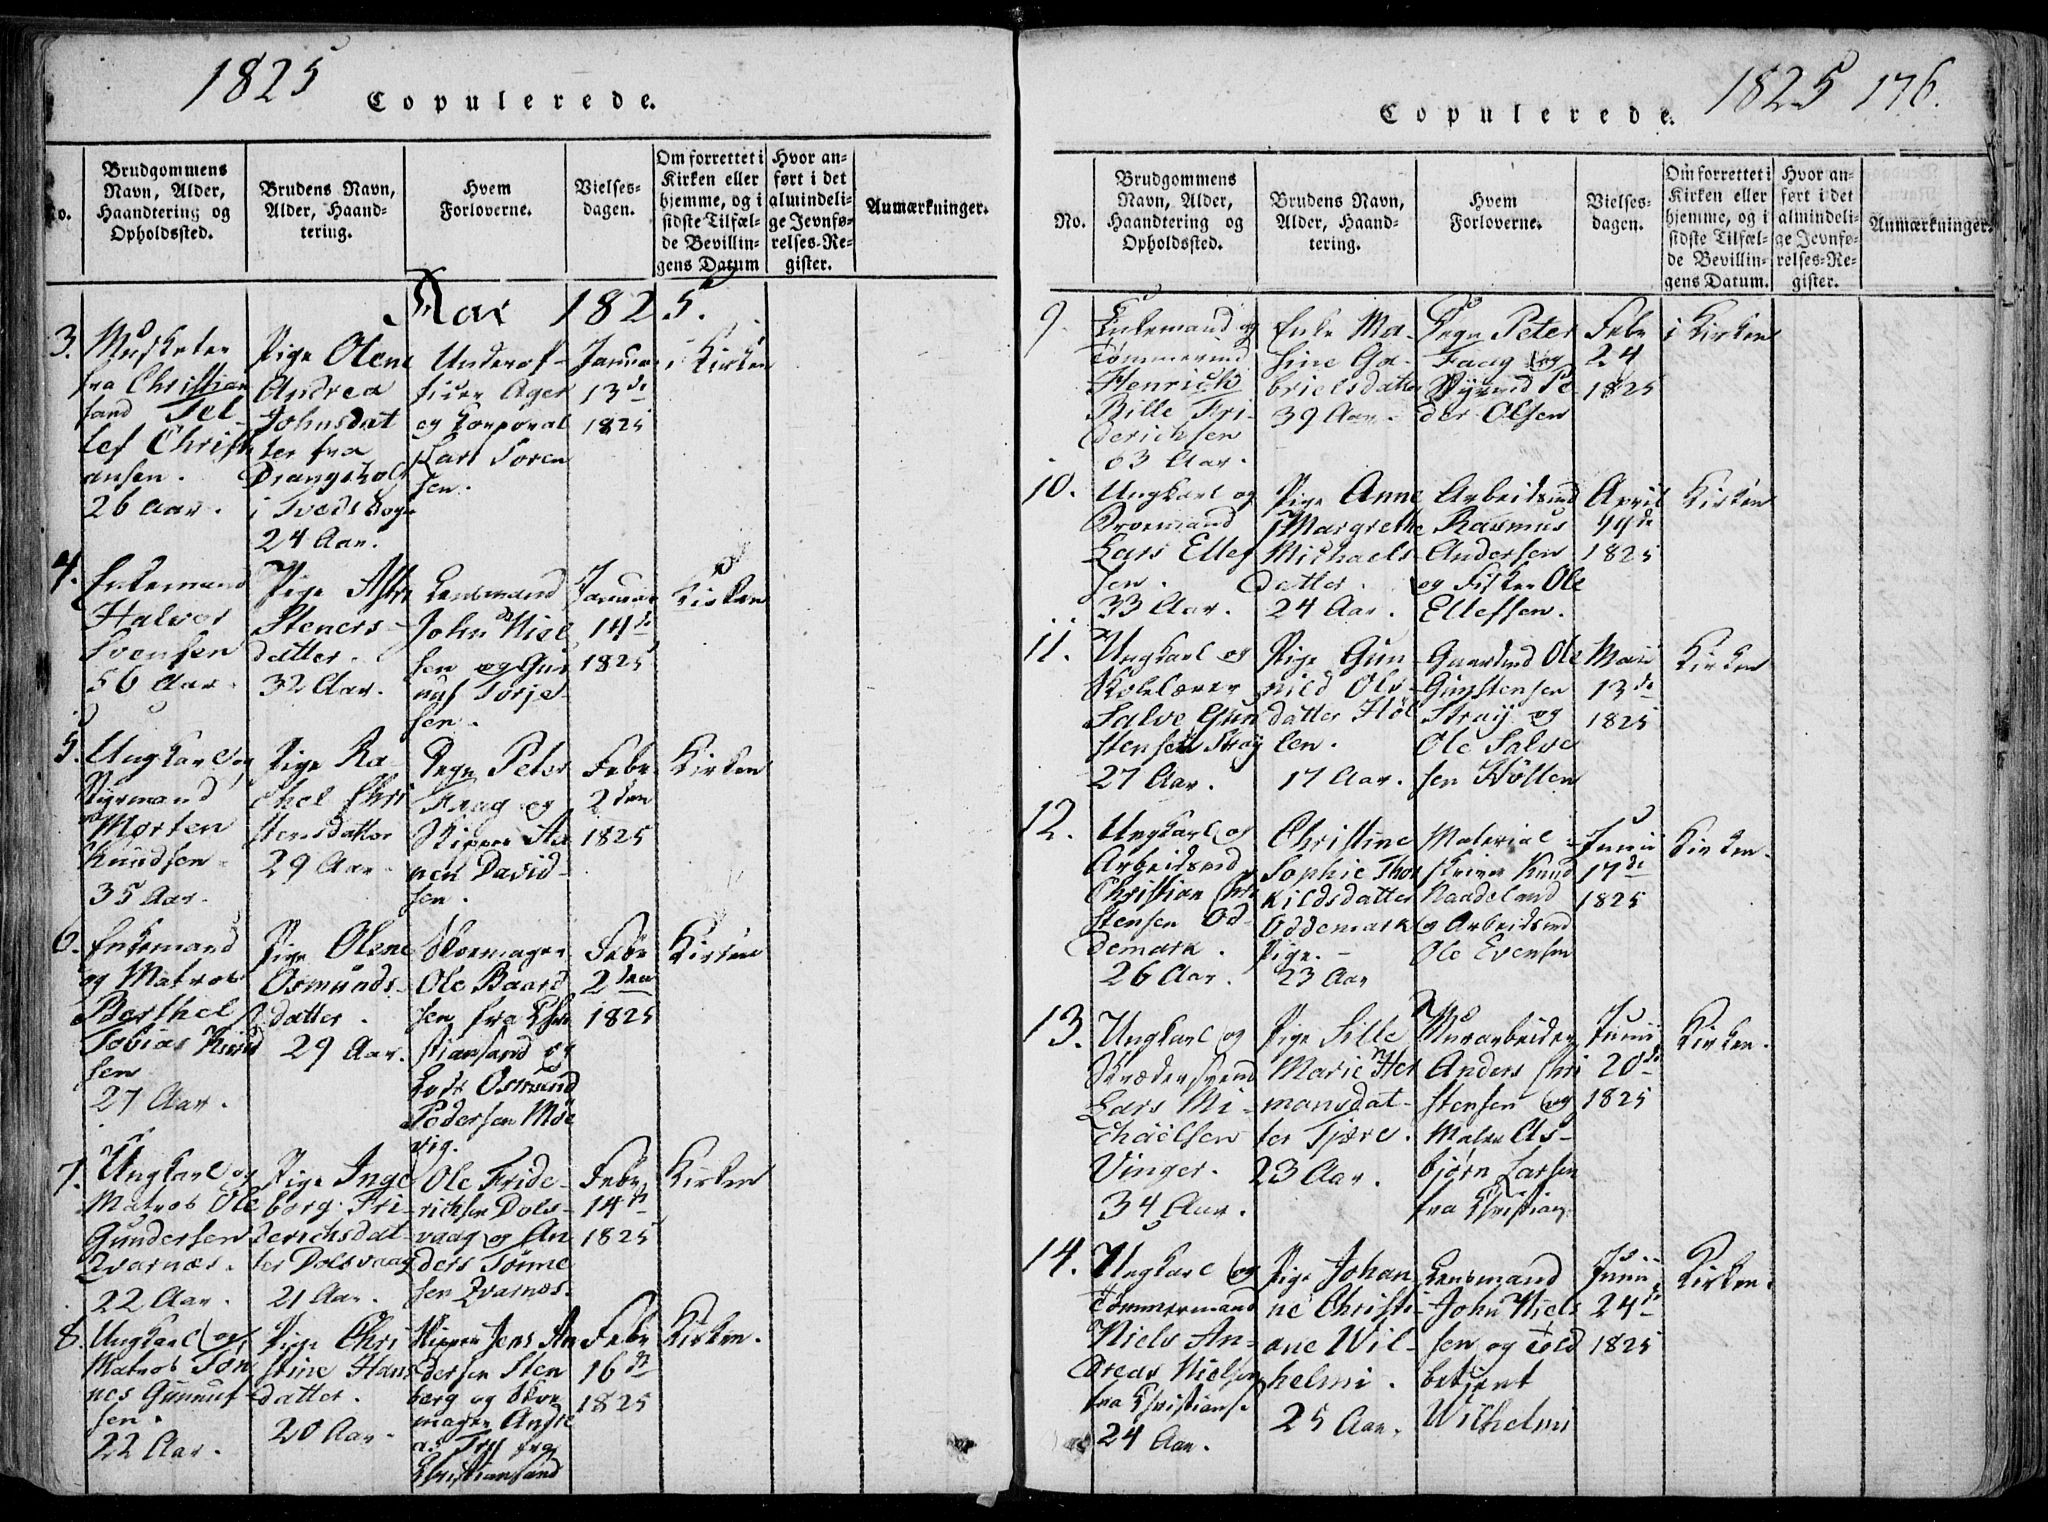 1825
Copulerede.
No.
Brudgommens
Navn, Alder,
Haandtering og
Opholdssted.
Brudens Navn,
Alder, Haand-
tering.
Hvem
Forloverne.
Vielses-
dagen.
Om forrettet i
Kirken eller
hjemme, og i
sidste Tilfæl-
de Bevillin-
gens Datum
Hvor an-
ført i det
almindeli-
ge Jevnfø-
relses-Re-
gister.
Anmærkninger.
Aar 1825.
3.
Musketer
fra Christian
sand Tel
lef Christi
ansen.
26 Aar.
Pige Olene
Andrea
Johnsdat
ter fra
Drangsholt
i Tveds Sogn
24 Aar.
Underof-
ficer Ager
og Corporal
Lars Soren
sen.
Januar
13de
1825
i Kirken
4.
Enkemand
Halvor
Svensen
56 Aar.
Pige Astri
Steners-
datter.
32 Aar.
Lensmand
John Niel
sen og Gun
nuf Torje-
sen.
Januar
14de
1825
Kirken
5.
Ungkarl og
Styrmand
Morten
Knudsen
35 Aar.
Pige Ra-
chel Chri
stensdatter
29 Aar.
Pege Peter
Faag og
Skipper Aa
nen David-
sen.
Febr
2den
1825
Kirken
6.
Enkemand
og Matros
Berthel
Tobias Knud
sen
27 Aar.
Pige Olene
Osmunds-
datter.
29 Aar.
Skomager
Ole Baard
sen fra Chri
stiansand og
Lods Osmund
Pedersen Møe
vig.
Febr
2den
1825
Kirken
7.
Ungkarl og
Matros Ole
Gundersen
Qvarnæs.
22 Aar.
Pige Inge
borg Fri-
derichsdat-
ter Dolsvaag
21 Aar.
Ole Fride-
richsen Dols-
vaag og An
ders Tønne
sen Qvarnæs.
Febr
14de
1825
Kirken
8.
Ungkarl og
Matros Ton
nes Gunnuf-
sen.
22 Aar.
Pige Chri
stine Hans
datter.
20 Aar.
Skipper Jens An
dersen Sten
berg og Skoe
mager Andre
as Try fra
Christiansand
Febr
16de
1825
Kirken.
1825 176.
Copulerede.
No.
Brudgommens
Navn, Alder,
Haandtering og
Opholdssted.
Brudens Navn,
Alder, Haand-
tering.
Hvem
Forloverne.
Vielses-
dagen.
Om forrettet i
Kirken eller
hjemme, og i
sidste Tilfæl-
de Bevillin-
gens Datum.
Hvor an-
ført i det
almindeli-
ge Jevnfø-
relses-Re-
gister.
Anmærkninger.
9.
Enkemand og
Tømmermd
Henrich
Bille Fri-
derichsen
63 Aar.
Enke Ma-
sine Ga-
brielsdatter
39 Aar.
Peter
Faag og
Styrmd Pe
der Olsen
Febr
24
1825
i Kirken
10.
Ungkarl og
Proemand
Lars Ellef
sen.
33 Aar.
Pige Anne
Margrethe
Michaels-
datter.
24 Aar.
Arbeidsmd
Rasmus
Andersen
og Fisker Ole
Ellefsen.
April
14de
1825
Kirken
11.
Ungkarl og
Skolelærer
Salve Gun
stensen Strøy
27 Aar.
Pige Gun-
nild Ols-
datter Høl
len.
17 Aar.
Gaardmd Ole
Gunstensen
Strøy og
Ole Salve
sen Hölten
Maii
13de
1825
Kirken
12.
Ungkarl og
Arbeidsmd
Christian Chri
stensen Od-
demark.
26 Aar.
Christine
Sophie Thor
kildsdatter
Oddemark
Pige.-
23 Aar
Material-
skriver Knud
Raadeland
og Arbeidsmd
Ole Evensen
Junii
17de
1825
Kirken.
13.
Ungkarl og
Skrædersvend
Lars Mi-
chaelsen
Vinger.
34 Aar.
Pige Sille
Marie Her
mansdat-
ter Tjære.
23 Aar.
Murarbeider
Anders Chri
stensen og
Maler As-
bjørn Larsen
fra Christians
Junii
20de
1825
Kirken.
14.
Ungkarl og
Tømmermand
Niels An-
dreas Nielsen
fra Christians
24 Aar.
Pige Johan
ne Christi-
ane Wil-
helmi.
25 Aar.
Lensmand
John Niels
sen og Told
betjent
Wilhelmi
Junii
24de
1825
Kirken.